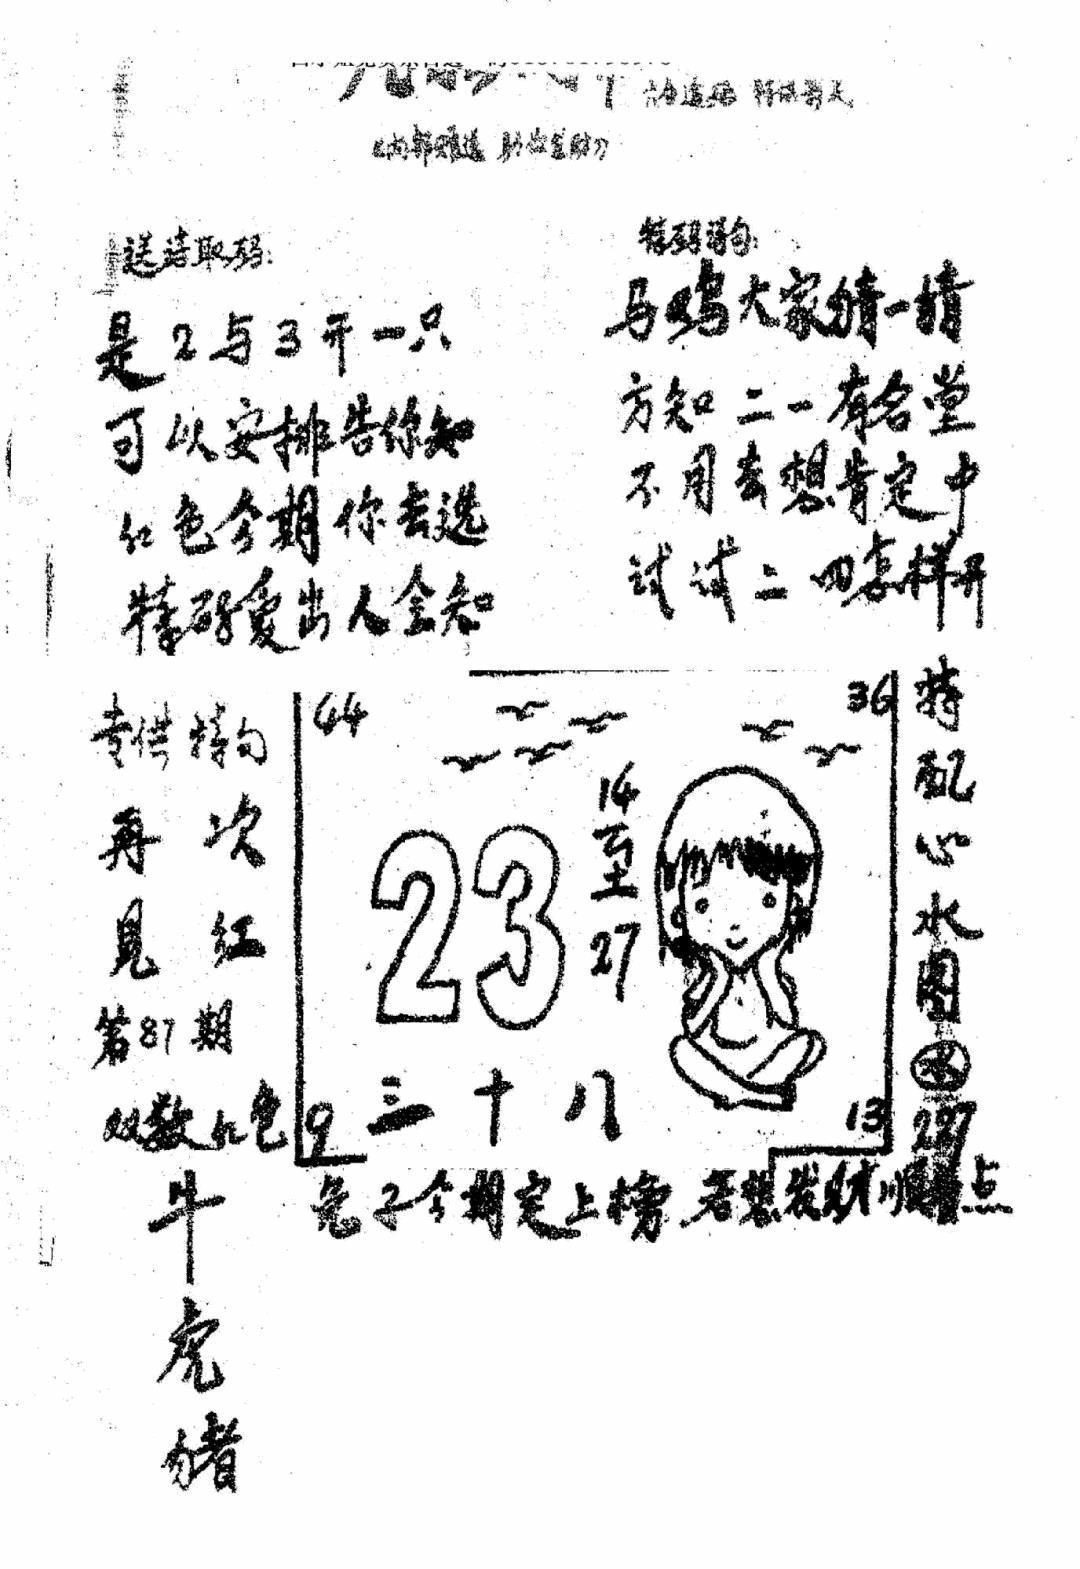 送诗取码:
是2与3开一只
可以安排告你知
红色今期你去选
特码爱出人全知
特码诗句:
马鸡大家猜一猜
方知二一有名堂
不用去想肯定中
试试二四怎样开
专供特句
再次
见红
第87期
双数红色
牛
虎
猪
44
36
14至27
23
三十八
9
13
特配心水图
兔子今期定上榜 若想发财顺点